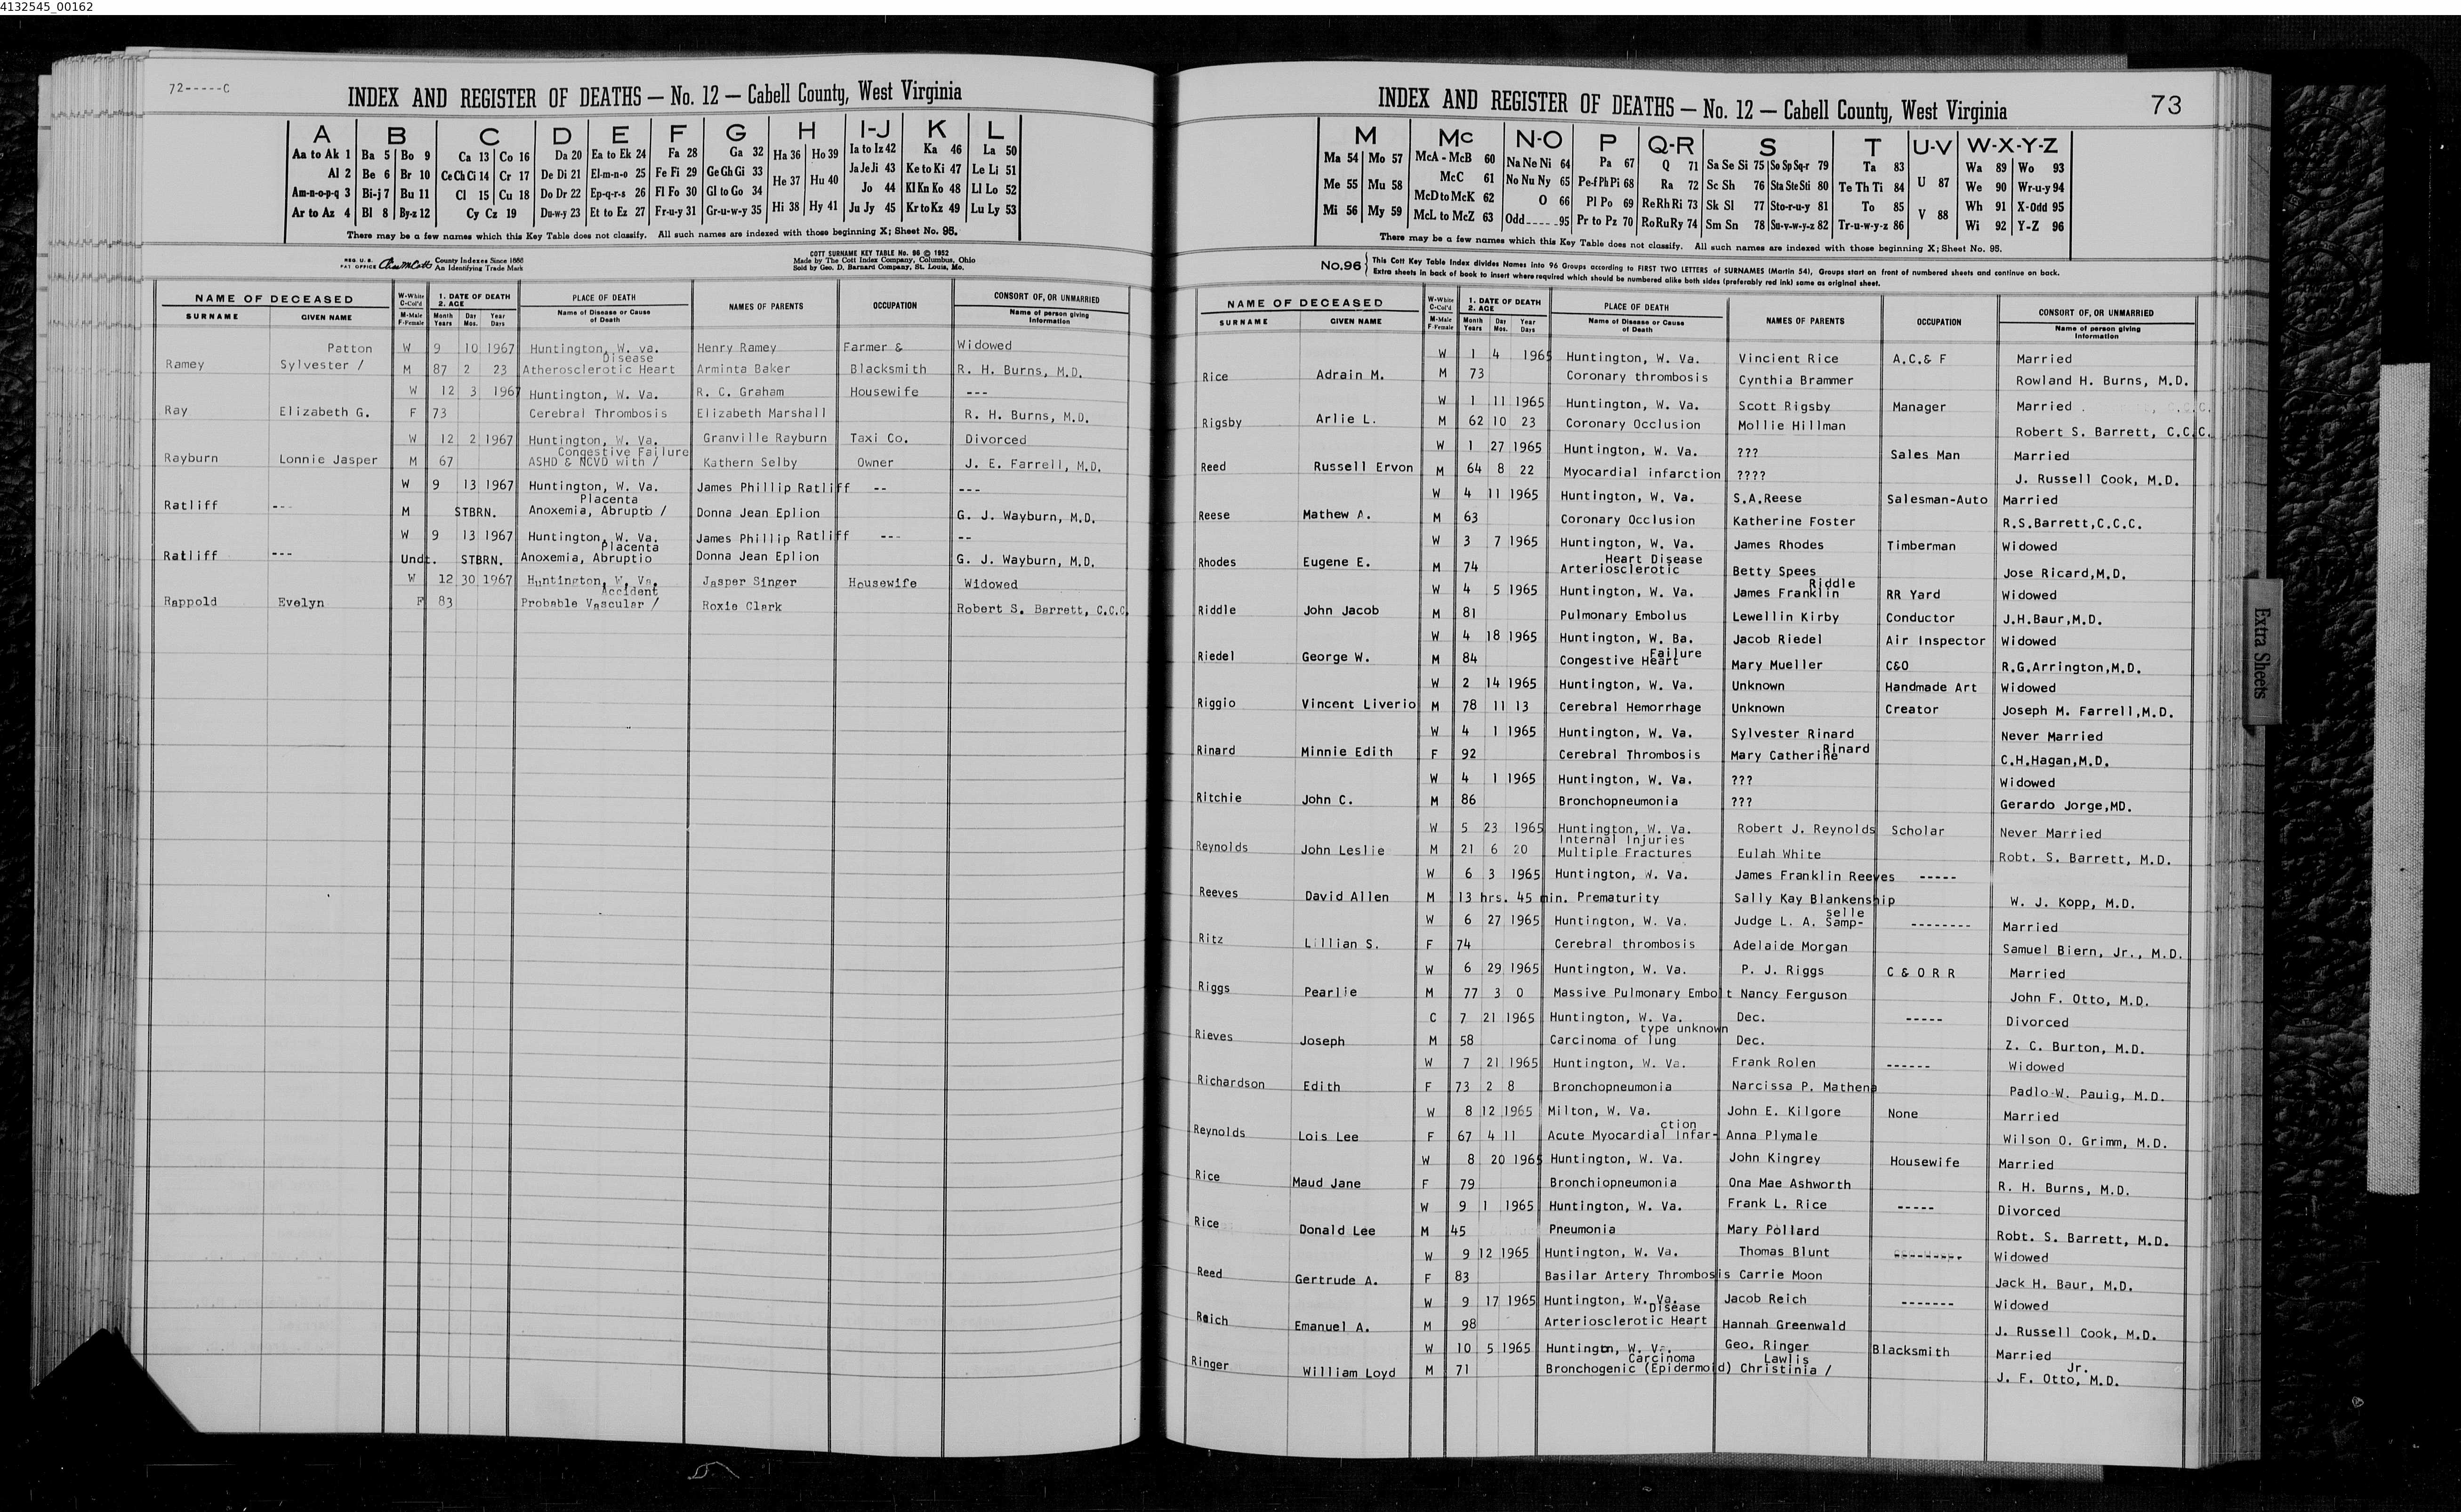 4132545_00162
72-----C
INDEX AND REGISTER OF DEATHS — No. 12 — Cabell County, West Virginia
A B C D E F G H I-J K L
Aa to Ak 1 Ba 5 Bo 9 Ca 13 Co 16 Da 20 Ea to Ek 24 Fa 28 Ga 32 Ha 36 Ho 39 Ia to Iz 42 Ka 46 La 50
Al 2 Be 6 Br 10 Ce Ch Ci 14 Cr 17 De Di 21 El-m-n-o 25 Fe Fi 29 Ge Gh Gi 33 He 37 Hu 40 Ja Je Ji 43 Ke to Ki 47 Le Li 51
Am-n-o-p-q 3 Bi-j 7 Bu 11 Cl 15 Cu 18 Do Dr 22 Ep-q-r-s 26 Fl Fo 30 Gl to Go 34 Jo 44 Kl Kn Ko 48 Ll Lo 52
Ar to Az 4 Bl 8 By-z 12 Cy Cz 19 Du-w-y 23 Et to Ez 27 Fr-u-y 31 Gr-u-w-y 35 Hi 38 Hy 41 Ju Jy 45 Kr to Kz 49 Lu Ly 53
There may be a few names which this Key Table does not classify. All such names are indexed with those beginning X; Sheet No. 95.
REG. U.S. PAT. OFFICE County Indexes Since 1888 An Identifying Trade Mark
COTT SURNAME KEY TABLE No. 96 © 1952
Made by The Cott Index Company, Columbus, Ohio
Sold by Geo. D. Barnard Company, St. Louis, Mo.
NAME OF DECEASED W-White C-Col'd 1. DATE OF DEATH 2. AGE PLACE OF DEATH NAMES OF PARENTS OCCUPATION CONSORT OF, OR UNMARRIED
SURNAME GIVEN NAME M-Male F-Female Month Years Day Mos. Year Days Name of Disease or Cause of Death Name of person giving Information
Patton W 9 10 1967 Huntington, W. va. Henry Ramey Farmer & Widowed
Disease
Ramey Sylvester / M 87 2 23 Atherosclerotic Heart Arminta Baker Blacksmith R. H. Burns, M.D.
W 12 3 1967 Huntington, W. Va. R. C. Graham Housewife ---
Ray Elizabeth G. F 73 Cerebral Thrombosis Elizabeth Marshall R. H. Burns, M.D.
W 12 2 1967 Huntington, W. Va. Granville Rayburn Taxi Co. Divorced
Congestive Failure
Rayburn Lonnie Jasper M 67 ASHD & NCVD with / Kathern Selby Owner J. E. Farrell, M.D.
W 9 13 1967 Huntington, W. Va. James Phillip Ratliff -- ---
Placenta
Ratliff --- M STBRN. Anoxemia, Abruptio / Donna Jean Eplion G. J. Wayburn, M.D.
W 9 13 1967 Huntington, W. Va. James Phillip Ratliff --- --
Placenta
Ratliff --- Undt. STBRN. Anoxemia, Abruptio Donna Jean Eplion G. J. Wayburn, M.D.
W 12 30 1967 Huntington, W. Va. Jasper Singer Housewife Widowed
Accident
Rappold Evelyn F 83 Probable Vascular / Roxie Clark Robert S. Barrett, C.C.C.
INDEX AND REGISTER OF DEATHS — No. 12 — Cabell County, West Virginia 73
M Mc N-O P Q-R S T U-V W-X-Y-Z
Ma 54 Mo 57 McA - McB 60 Na Ne Ni 64 Pa 67 Q 71 Sa Se Si 75 So Sp Sq-r 79 Ta 83 Wa 89 Wo 93
Me 55 Mu 58 McC 61 No Nu Ny 65 Pe-f Ph Pi 68 Ra 72 Sc Sh 76 Sta Ste Sti 80 Te Th Ti 84 U 87 We 90 Wr-u-y 94
McD to McK 62 O 66 Pl Po 69 Re Rh Ri 73 Sk Sl 77 Sto-r-u-y 81 To 85 Wh 91 X-Odd 95
Mi 56 My 59 McL to McZ 63 Odd-----95 Pr to Pz 70 Ro Ru Ry 74 Sm Sn 78 Su-v-w-y-z 82 Tr-u-w-y-z 86 V 88 Wi 92 Y-Z 96
There may be a few names which this Key Table does not classify. All such names are indexed with those beginning X; Sheet No. 95.
No.96 This Cott Key Table Index divides Names into 96 Groups according to FIRST TWO LETTERS of SURNAMES (Martin 54), Groups start on front of numbered sheets and continue on back.
Extra sheets in back of book to insert where required which should be numbered alike both sides (preferably red ink) same as original sheet.
NAME OF DECEASED W-White C-Col'd 1. DATE OF DEATH 2. AGE PLACE OF DEATH NAMES OF PARENTS OCCUPATION CONSORT OF, OR UNMARRIED
SURNAME GIVEN NAME M-Male F-Female Month Years Day Mos. Year Days Name of Disease or Cause of Death Name of person giving Information
W 1 4 1965 Huntington, W. Va. Vincient Rice A.C.& F Married
Rice Adrain M. M 73 Coronary thrombosis Cynthia Brammer Rowland H. Burns, M.D.
W 1 11 1965 Huntington, W. Va. Scott Rigsby Manager Married
Rigsby Arlie L. M 62 10 23 Coronary Occlusion Mollie Hillman Robert S. Barrett, C.C.C.
W 1 27 1965 Huntington, W. Va. ??? Sales Man Married
Reed Russell Ervon M 64 8 22 Myocardial infarction ???? J. Russell Cook, M.D.
W 4 11 1965 Huntington, W. Va. S.A.Reese Salesman-Auto Married
Reese Mathew A. M 63 Coronary Occlusion Katherine Foster R.S.Barrett,C.C.C.
W 3 7 1965 Huntington, W. Va. James Rhodes Timberman Widowed
Heart Disease
Rhodes Eugene E. M 74 Arteriosclerotic Betty Spees Jose Ricard,M.D.
Riddle
W 4 5 1965 Huntington, W. Va. James Franklin RR Yard Widowed
Riddle John Jacob M 81 Pulmonary Embolus Lewellin Kirby Conductor J.H.Baur,M.D.
W 4 18 1965 Huntington, W. Ba. Jacob Riedel Air Inspector Widowed
Failure
Riedel George W. M 84 Congestive Heart Mary Mueller C&O R.G.Arrington,M.D.
W 2 14 1965 Huntington, W. Va. Unknown Handmade Art Widowed
Riggio Vincent Liverio M 78 11 13 Cerebral Hemorrhage Unknown Creator Joseph M. Farrell,M.D.
W 4 1 1965 Huntington, W. Va. Sylvester Rinard Never Married
Rinard
Rinard Minnie Edith F 92 Cerebral Thrombosis Mary Catherine C.H.Hagan,M.D.
W 4 1 1965 Huntington, W. Va. ??? Widowed
Ritchie John C. M 86 Bronchopneumonia ??? Gerardo Jorge,MD.
W 5 23 1965 Huntington, W. Va. Robert J. Reynolds Scholar Never Married
Internal Injuries
Reynolds John Leslie M 21 6 20 Multiple Fractures Eulah White Robt. S. Barrett, M.D.
W 6 3 1965 Huntington, W. Va. James Franklin Reeves -----
Reeves David Allen M 13 hrs. 45 min. Prematurity Sally Kay Blankenship W. J. Kopp, M.D.
selle
W 6 27 1965 Huntington, W. Va. Judge L. A. Samp- -------- Married
Ritz Lillian S. F 74 Cerebral thrombosis Adelaide Morgan Samuel Biern, Jr., M.D.
W 6 29 1965 Huntington, W. Va. P. J. Riggs C & O R R Married
Riggs Pearlie M 77 3 0 Massive Pulmonary Embolt Nancy Ferguson John F. Otto, M.D.
C 7 21 1965 Huntington, W. Va. Dec. ----- Divorced
type unknown
Rieves Joseph M 58 Carcinoma of lung Dec. Z. C. Burton, M.D.
W 7 21 1965 Huntington, W. Va. Frank Rolen ------ Widowed
Richardson Edith F 73 2 8 Bronchopneumonia Narcissa P. Mathena Padlo W. Pauig, M.D.
W 8 12 1965 Milton, W. Va. John E. Kilgore None Married
ction
Reynolds Lois Lee F 67 4 11 Acute Myocardial Infar- Anna Plymale Wilson O. Grimm, M.D.
W 8 20 1965 Huntington, W. Va. John Kingrey Housewife Married
Rice Maud Jane F 79 Bronchiopneumonia Ona Mae Ashworth R. H. Burns, M.D.
W 9 1 1965 Huntington, W. Va. Frank L. Rice ----- Divorced
Rice Donald Lee M 45 Pneumonia Mary Pollard Robt. S. Barrett, M.D.
W 9 12 1965 Huntington, W. Va. Thomas Blunt -------- Widowed
Reed Gertrude A. F 83 Basilar Artery Thrombosis Carrie Moon Jack H. Baur, M.D.
W 9 17 1965 Huntington, W. Va. Jacob Reich ------- Widowed
Disease
Reich Emanuel A. M 98 Arteriosclerotic Heart Hannah Greenwald J. Russell Cook, M.D.
W 10 5 1965 Huntingtn, W. Va. Geo. Ringer Blacksmith Married
Carcinoma Lawlis Jr.
Ringer William Loyd M 71 Bronchogenic (Epidermoid) Christinia / J. F. Otto, M.D.
Extra Sheets